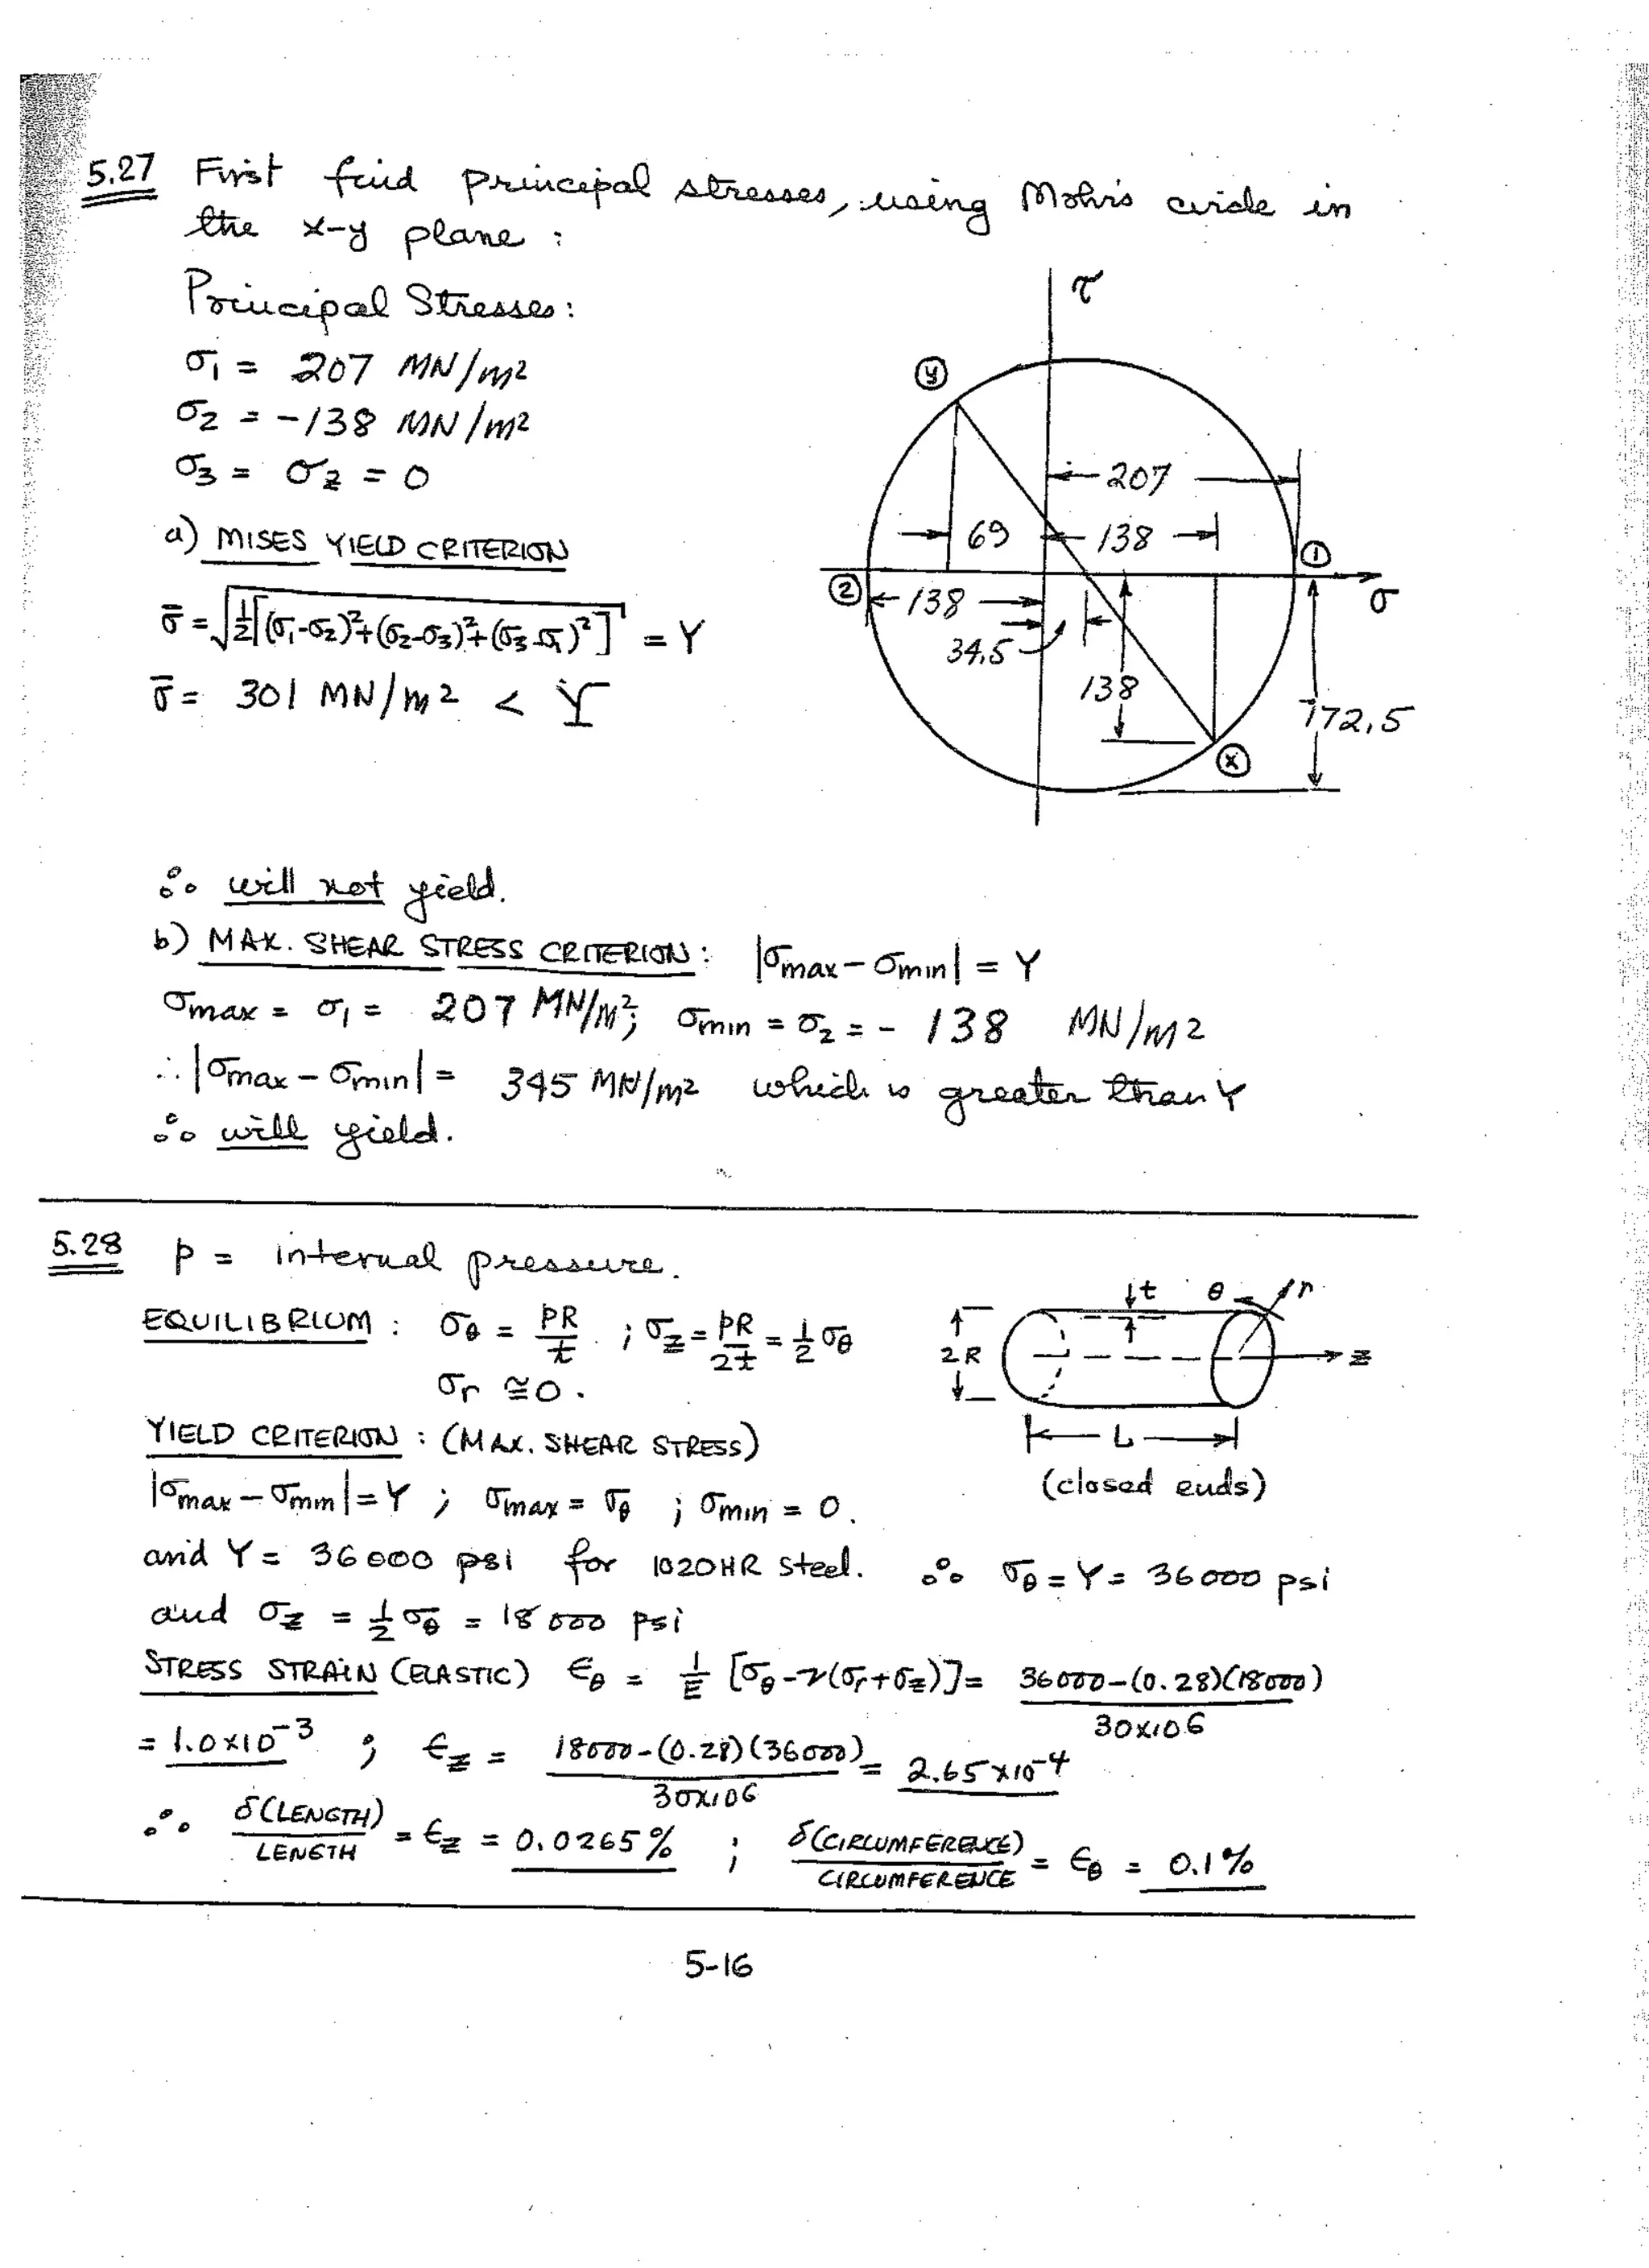 5.27 First find principal stresses, using Mohr's circle in
the x-y plane :
Principal Stresses :
σ1 = 207 MN/m2
σ2 = -138 MN/m2
σ3 = σz = 0
a) MISES YIELD CRITERION
σ̄ = √½[(σ1-σ2)²+(σ2-σ3)²+(σ3-σ1)²] = Y
σ̄ = 301 MN/m2 < Y
τ
y
207
69
138
1
2
138
σ
34.5
138
172.5
x
∴ will not yield.
b) MAX. SHEAR STRESS CRITERION : |σmax - σmin| = Y
σmax = σ1 = 207 MN/m²; σmin = σ2 = - 138 MN/m2
∴ |σmax - σmin| = 345 MN/m2 which is greater than Y
∴ will yield.
5.28 p = internal pressure.
EQUILIBRIUM : σθ = pR/t ; σz = pR/2t = ½ σθ
σr ≅ 0.
t θ r
2R
z
L
(closed ends)
YIELD CRITERION : (MAX. SHEAR STRESS)
|σmax - σmin| = Y ; σmax = σθ ; σmin = 0.
and Y = 36000 psi for 1020HR steel. ∴ σθ = Y = 36000 psi
and σz = ½ σθ = 18000 psi
STRESS STRAIN (ELASTIC) ϵθ = 1/E [σθ-ν(σr+σz)] = 36000-(0.28)(18000)/30x10⁶
= 1.0x10⁻³ ; ϵz = 18000-(0.28)(36000)/30x10⁶ = 2.65x10⁻⁴
∴ δ(LENGTH)/LENGTH = ϵz = 0.0265% ; δ(CIRCUMFERENCE)/CIRCUMFERENCE = ϵθ = 0.1%
5-16